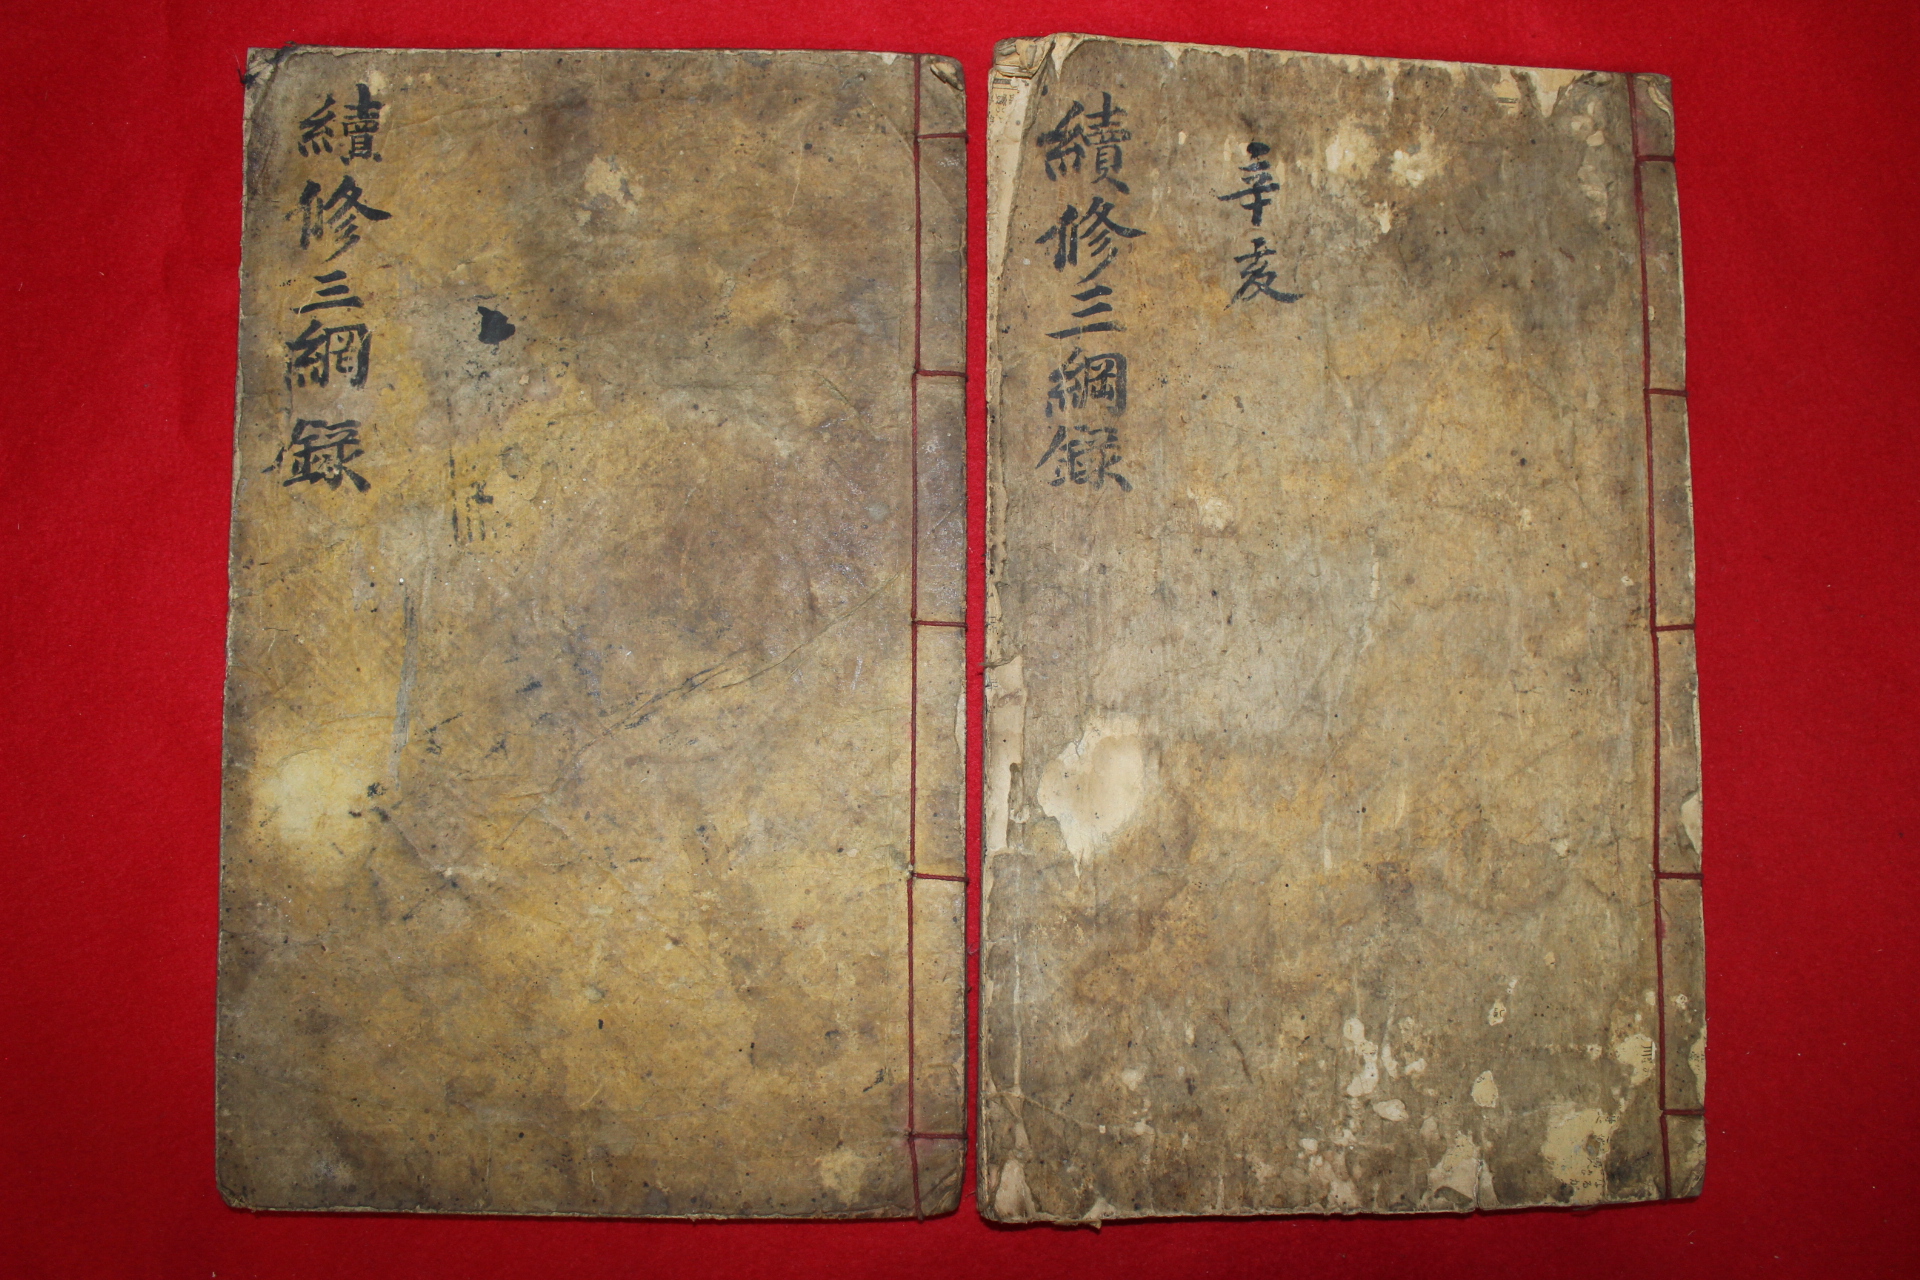 續修三綱錄
辛亥
續修三綱錄